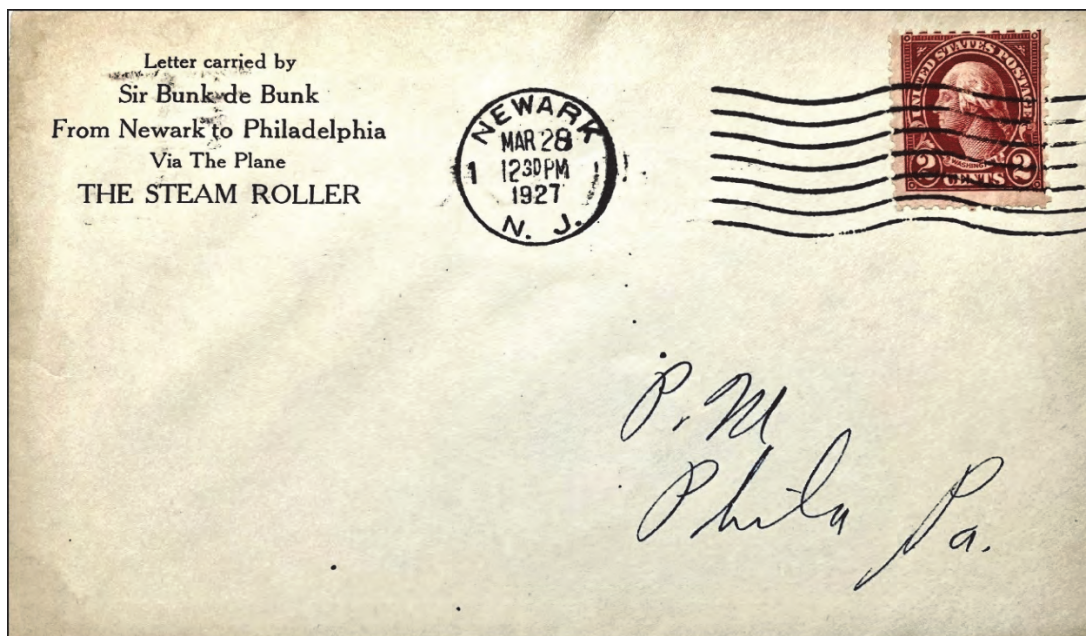 Letter carried by
Sir Bunk de Bunk
From Newark to Philadelphia
Via The Plane
THE STEAM ROLLER
NEWARK
MAR 28
1230PM
1927
N. J.
1
UNITED STATES POSTAGE
WASHINGTON
2 CENTS 2
P. M
Phila Pa.